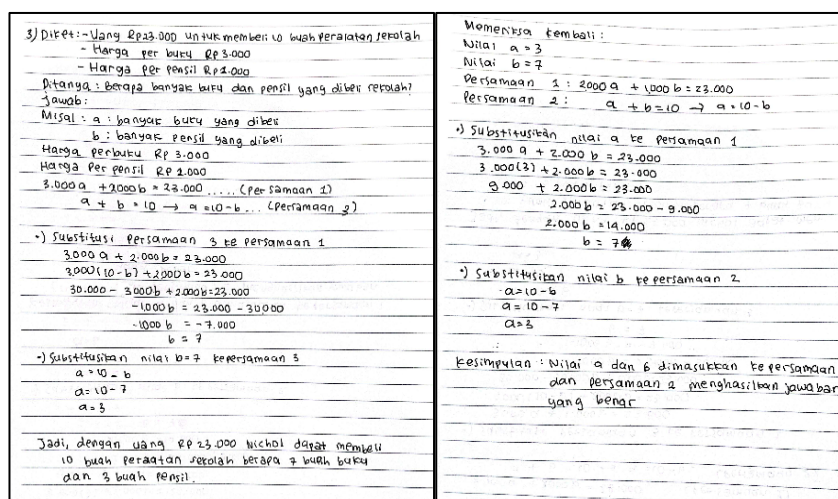 3) Diket : - Uang Rp23.000 untuk membeli 10 buah peralatan sekolah
- Harga per buku Rp 3.000
- Harga per pensil Rp 2.000
Ditanya : Berapa banyak buku dan pensil yang dibeli sekolah?
Jawab :
Misal : a : banyak buku yang dibeli
b : banyak pensil yang dibeli
Harga perbuku Rp 3.000
Harga per pensil Rp 2.000
3.000 a + 2000 b = 23.000 ..... (persamaan 1)
a + b = 10 → a = 10 - b ... (persamaan 3)
•) Substitusi persamaan 3 ke persamaan 1
3.000 a + 2.000 b = 23.000
3.000 (10 - b) + 2.000 b = 23.000
30.000 - 3000 b + 2.000 b = 23.000
-1.000 b = 23.000 - 30.000
-1.000 b = -7.000
b = 7
•) Substitusikan nilai b = 7 kepersamaan 3
a = 10 - b
a = 10 - 7
a = 3
Jadi, dengan uang Rp 23.000 Nichol dapat membeli
10 buah peraatan sekolah berapa 7 buah buku
dan 3 buah pensil.
Memeriksa kembali :
Nilai a = 3
Nilai b = 7
Persamaan 1 : 2000 a + 1.000 b = 23.000
Persamaan 2 : a + b = 10 → a = 10 - b
•) Substitusikan nilai a ke persamaan 1
3.000 a + 2.000 b = 23.000
3.000 (3) + 2.000 b = 23.000
9.000 + 2.000 b = 23.000
2.000 b = 23.000 - 9.000
2.000 b = 14.000
b = 7
•) Substitusikan nilai b ke persamaan 2
a = 10 - b
a = 10 - 7
a = 3
Kesimpulan : Nilai a dan b dimasukkan ke persamaan
dan persamaan 2 menghasilkan jawaban
yang benar